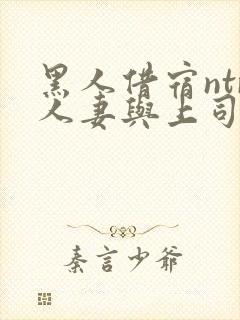 黑人借宿nt
人妻與上司
秦言少爷